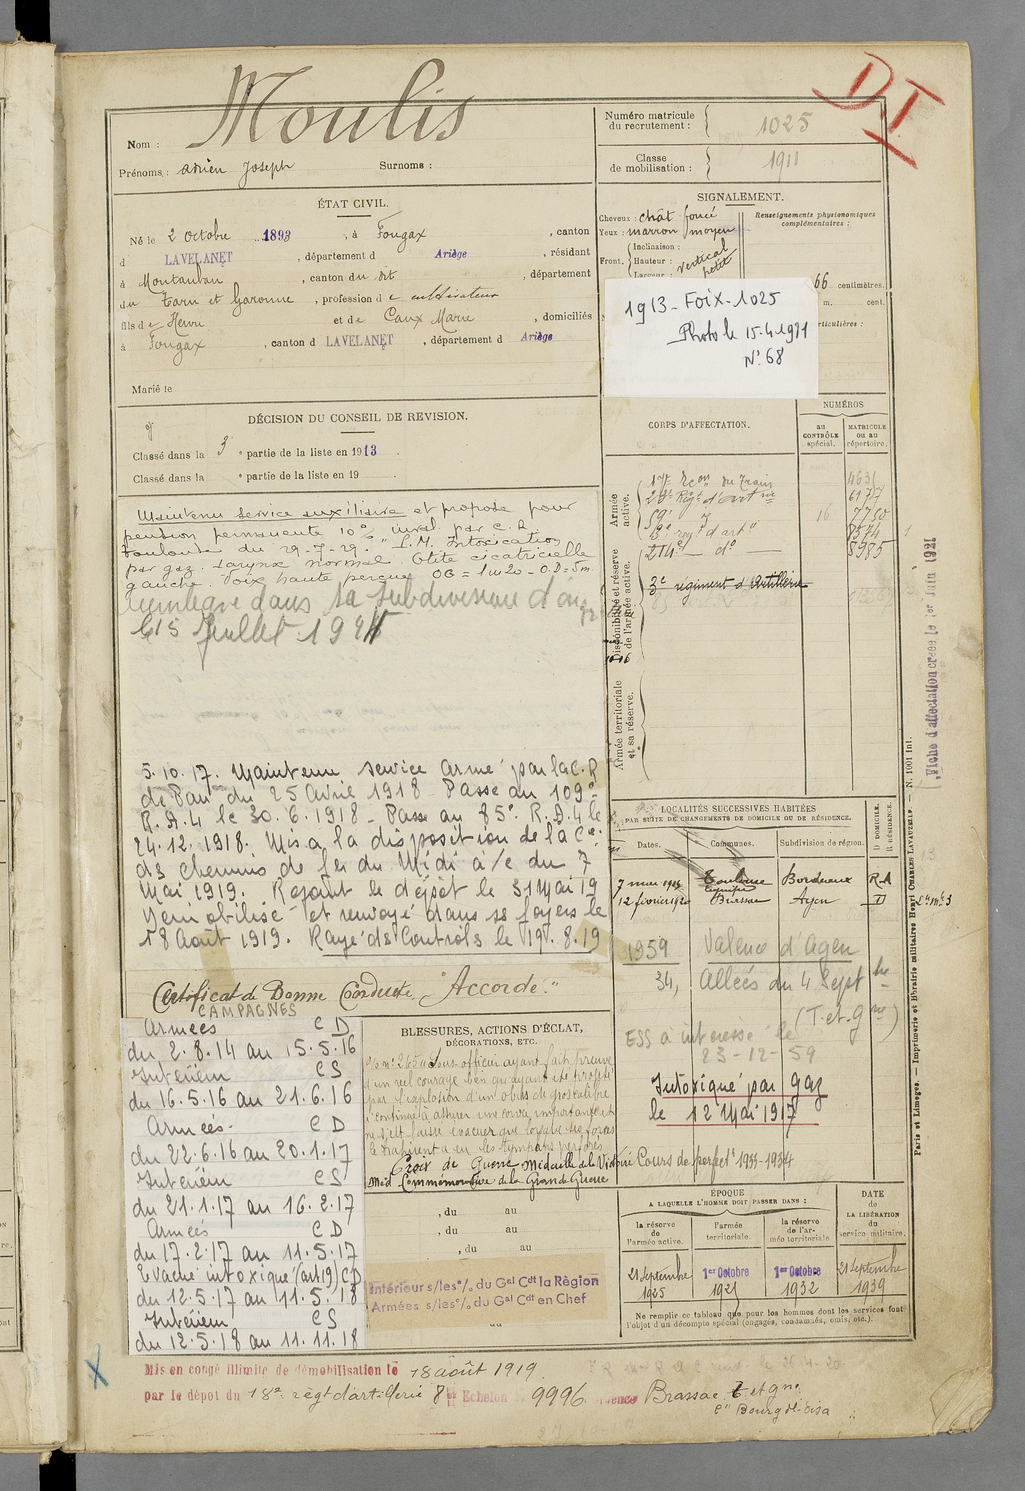 Moulis
Nom :
Prénoms : Adrien Joseph Surnoms :
ÉTAT CIVIL.
Né le 2 octobre 1893, à Fougax, canton
d LAVELANET, département d Ariège, résidant
à Montauban, canton du dit, département
du Tarn et Garonne, profession de cultivateur
fils de Henri et de Caux Marie, domiciliés
à Fougax, canton d LAVELANET, département d Ariège
Marié le
DÉCISION DU CONSEIL DE REVISION.
Classé dans la 3e partie de la liste en 1913.
Classé dans la e partie de la liste en 19 .
Maintenu service auxiliaire et proposé pour
pension permanente 10% inval. par C.R
Toulouse du 29-7-29. " I.M. Intoxication
par gaz. Larynx normal Otite cicatricielle
gauche. Voix haute perçue OG = 1m20 - O.D = 5m
Réintégré dans sa subdivision d'
le 15 Juillet 19
5.10.17. Maintenu service armé par la C.R
de Pau du 25 Avril 1918 Passé au 109e
R.A.L le 30.6.1918 - Passé au 85e R.A.L le
24.12.1918. Mis à la disposition de la Cie
des chemins de fer du Midi à/c du 7
Mai 1919. Rejoint le dépôt le 31 Mai 19
Démobilisé et renvoyé dans ses foyers le
18 Août 1919. Rayé des Contrôls le 19.8.19
Certificat de Bonne Conduite "Accordé."
CAMPAGNES
Armées CD
du 2.8.14 au 15.5.16
Intérieur CS
du 16.5.16 au 21.6.16
Armées CD
du 22.6.16 au 20.1.17
Intérieur CS
du 21.1.17 au 16.2.17
Armées CD
du 17.2.17 au 11.5.17
Evacué intoxiqué (art 19) CD
du 12.5.17 au 11.5.18
Intérieur CS
du 12.5.18 au 11.11.18
BLESSURES, ACTIONS D'ÉCLAT,
DÉCORATIONS, ETC.
Sous-officier ayant fait preuve
d'un réel courage bien qu'ayant été projeté
par l'explosion d'un obus de gros calibre
a continué à assurer une corvée importante
Croix de Guerre Médaille de la Victoire
Med Commémorative de la Grande Guerre
, du au
, du au
, du au
Intérieur s/les o/. du Gal Cdt la Région
Armées s/les o/. du Gal Cdt en Chef
Numéro matricule
du recrutement : 1025
Classe
de mobilisation : 1911
D.I.
SIGNALEMENT.
Cheveux : chât foncé
Yeux : marron moyen
Front. Inclinaison :
Hauteur : vertical
Largeur : petit
Renseignements physionomiques
complémentaires :
66 centimètres.
m. cent.
rticulières :
1913-Foix-1025
Photo le 15.4.1971
N° 68
CORPS D'AFFECTATION.
NUMÉROS
au
CONTRÔLE
spécial.
MATRICULE
ou au
répertoire.
Armée
active.
6177
16 7750
8985
214e — do —
3e régiment d'Artillerie
Disponibilité et réserve
de l'armée active.
Armée territoriale
et sa réserve.
Fiche d'affectation créée le 1er Juin 1921
LOCALITÉS SUCCESSIVES HABITÉES
PAR SUITE DE CHANGEMENTS DE DOMICILE OU DE RÉSIDENCE.
Dates. Communes. Subdivision de région. D DOMICILE. R RÉSIDENCE.
Toulouse Bordeaux
12 février 1920 Brassac Agen D
1959 Valence d'Agen
34, Allées du 4 Sept bre
(T. et G ne)
ESS a intéressé le
23-12-59
Intoxiqué par gaz
le 12 Mai 1917
Cours de perfect t 1933-1934
ÉPOQUE
A LAQUELLE L'HOMME DOIT PASSER DANS :
la réserve
de
l'armée active.
l'armée
territoriale.
la réserve
de l'ar-
mée territoriale
DATE
de
LA LIBÉRATION
du
service militaire.
21 Septembre
1925
1er Octobre
1927
1er Octobre
1932
21 Septembre
1939
Ne remplir ce tableau que pour les hommes dont les services font
l'objet d'un décompte spécial (engagés, condamnés, omis, etc.).
Paris et Limoges. — Imprimerie et librairie militaires Henri CHARLES-LAVAUZELLE. — N. 1001 int.
Mis en congé illimité de démobilisation le 18 août 1919
par le dépôt du 18e régt d'artillerie 8e Echelon 9996 Brassac T et gne
Con Bourg de Visa